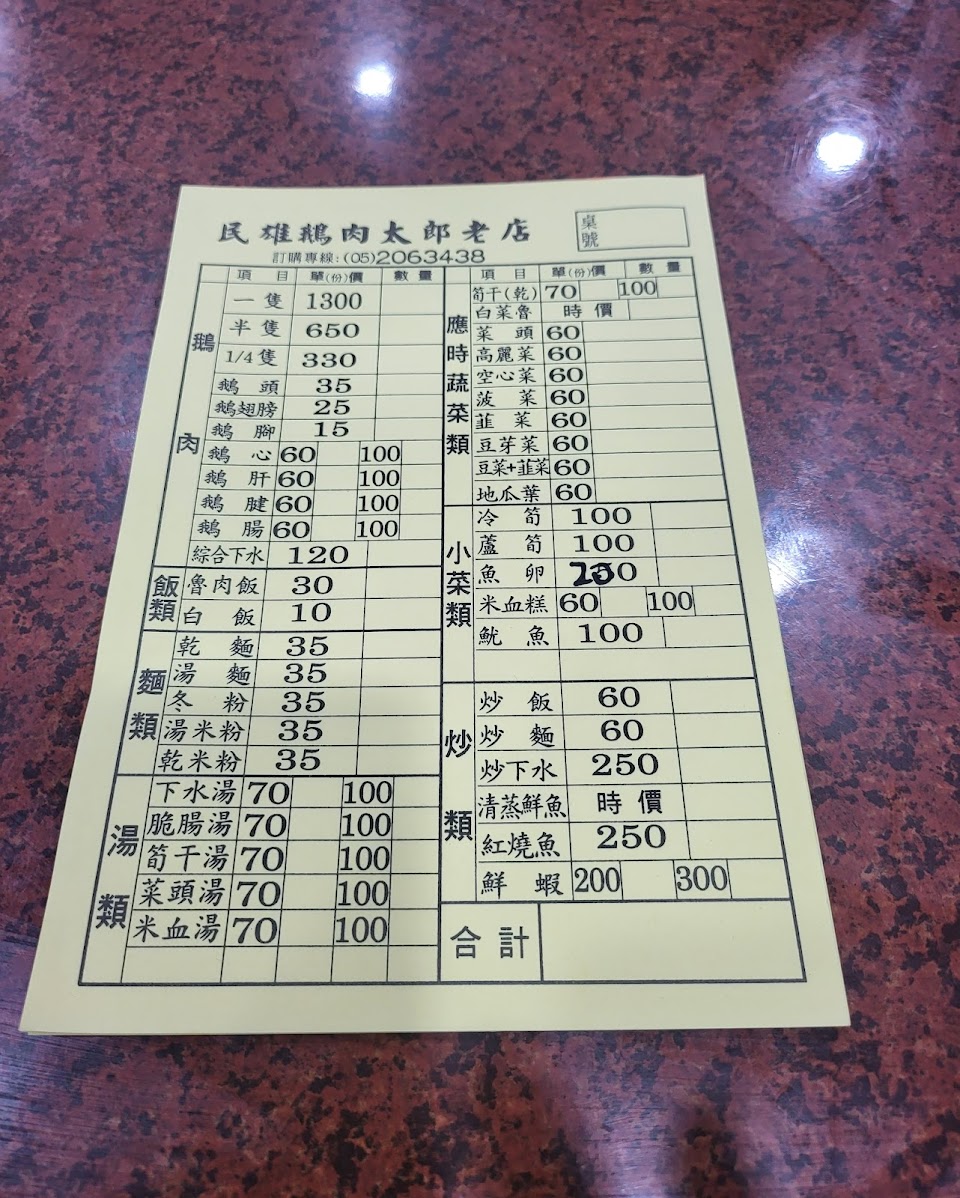 民雄鵝肉太郎老店
桌號
訂購專線:(05)2063438
項目 單(份)價 數量
鵝肉
一隻 1300
半隻 650
1/4隻 330
鵝頭 35
鵝翅膀 25
鵝腳 15
鵝心 60 100
鵝肝 60 100
鵝腱 60 100
鵝腸 60 100
綜合下水 120
飯類
魯肉飯 30
白飯 10
麵類
乾麵 35
湯麵 35
冬粉 35
湯米粉 35
乾米粉 35
湯類
下水湯 70 100
脆腸湯 70 100
筍干湯 70 100
菜頭湯 70 100
米血湯 70 100
項目 單(份)價 數量
應時蔬菜類
筍干(乾) 70 100
白菜魯 時價
菜頭 60
高麗菜 60
空心菜 60
菠菜 60
韭菜 60
豆芽菜 60
豆菜+韭菜 60
地瓜葉 60
小菜類
冷筍 100
蘆筍 100
魚卵
米血糕 60 100
魷魚 100
炒類
炒飯 60
炒麵 60
炒下水 250
清蒸鮮魚 時價
紅燒魚 250
鮮蝦 200 300
合計